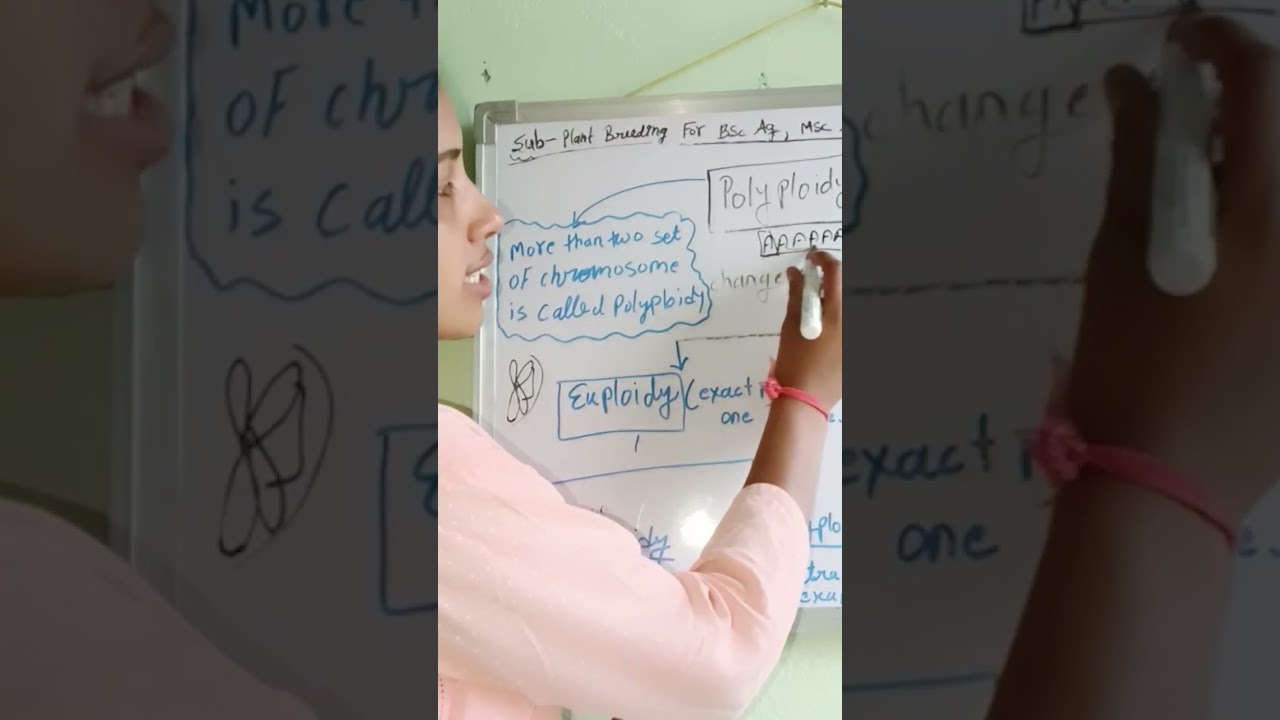 Sub- Plant Breeding For BSc Ag, MSc
Polyploidy
AAAAAA
More than two set
of chromosome
is called Polyploidy
change
Euploidy (exact
one